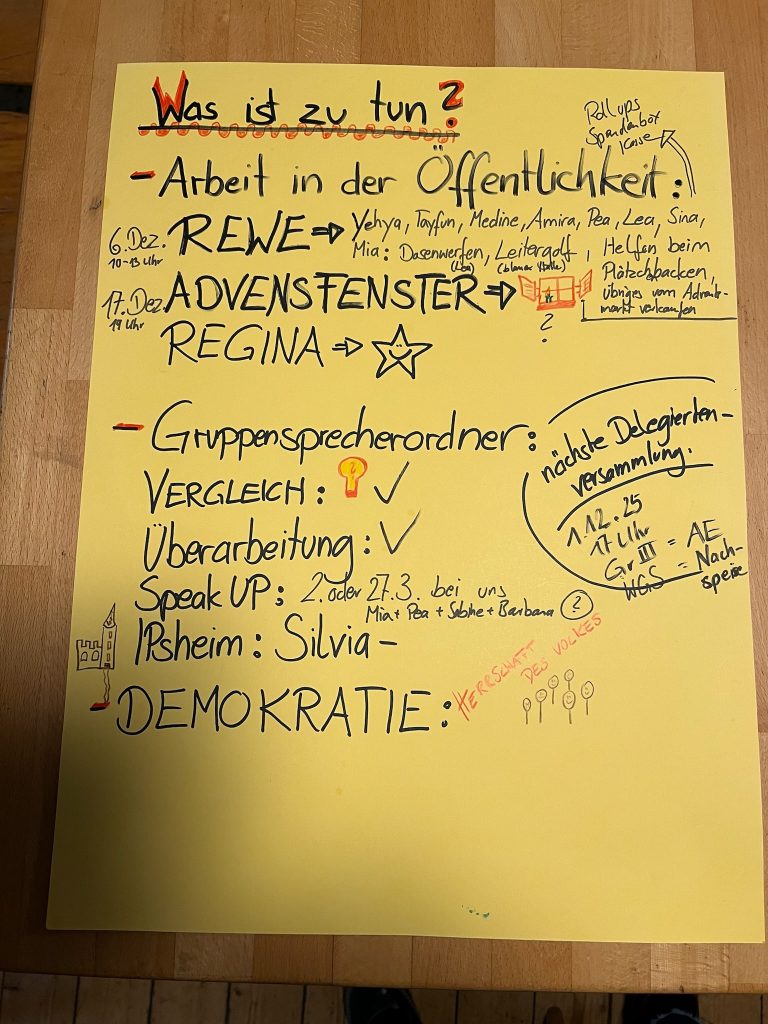 Was ist zu tun?
Roll ups
Spendenbox
Kasse
- Arbeit in der Öffentlichkeit:
6. Dez.
10-13 Uhr
REWE => Yehya, Tayfun, Medine, Amira, Pea, Lea, Sina,
Mia: Dosenwerfen, Leitergolf, Helfen beim
(blaues Halle)
Plätzchbacken,
Übriges vom Advents-
markt verkaufen
17. Dez.
19 Uhr
ADVENSFENSTER =>
?
REGINA =>
- Gruppensprecherordner:
VERGLEICH: ✓
Überarbeitung: ✓
Speak UP: 2. oder 27.3. bei uns
Mia + Pea + Sabine + Barbara ?
IPsheim: Silvia -
- DEMOKRATIE: HERRSCHAFT
DES VOLKES
nächste Delegierten-
versammlung.
1.12.25
17 Uhr
Gr III = AE
WGS = Nach-
speise